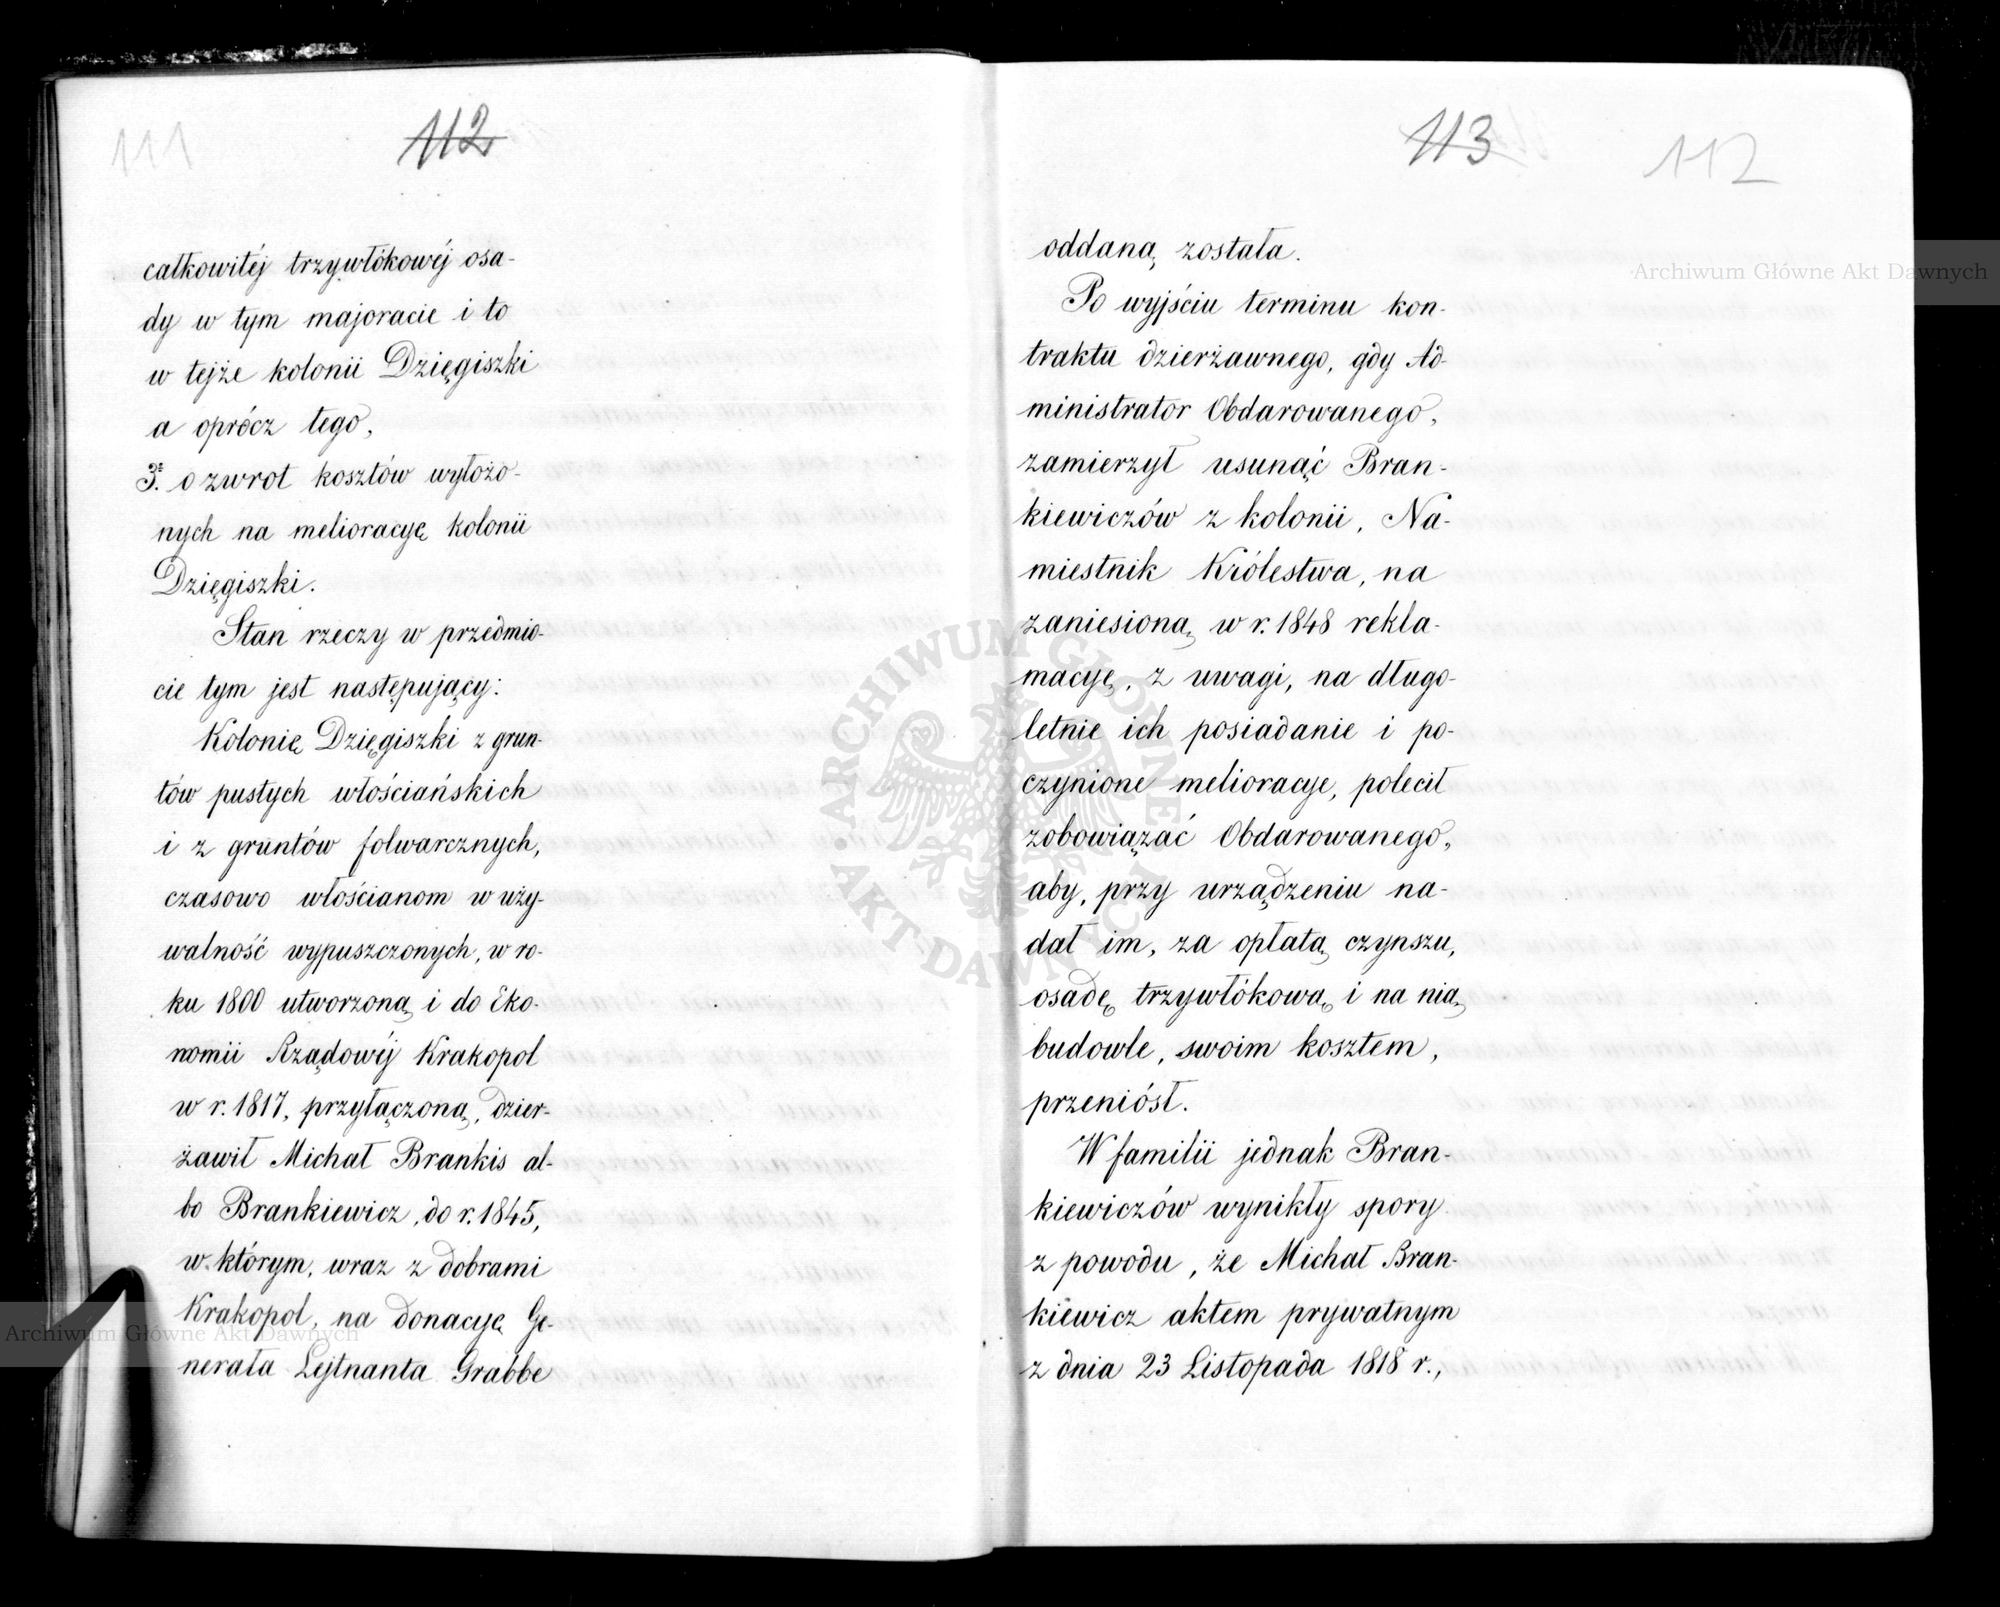 111
112
całkowitéj trzywłókowéj osa-
dy w tym majoracie i to
w tejże kolonii Dzięgiszki
a oprócz tego,
3º. o zwrot kosztów wyłożo-
nych na melioracyę kolonii
Dzięgiszki.
Stan rzeczy w przedmio-
cie tym jest następujący:
Kolonię Dzięgiszki z grun-
tów pustych włościańskich
i z gruntów folwarcznych,
czasowo włościanom w uży-
walność wypuszczonych, w ro-
ku 1800 utworzoną i do Eko-
nomii Rządowéj Krakopol
w r. 1817, przyłączoną, dzier-
żawił Michał Brankis al-
bo Brankiewicz, do r. 1845,
w którym, wraz z dobrami
Krakopol, na donacyę Ge-
nerała Lejtnanta Grabbe
113
112
oddaną została.
Po wyjściu terminu kon-
traktu dzierżawnego, gdy Ad-
ministrator Obdarowanego,
zamierzył usunąć Bran-
kiewiczów z kolonii, Na-
miestnik Królestwa, na
zaniesioną w r. 1848 rekla-
macyę, z uwagi, na długo-
letnie ich posiadanie i po-
czynione melioracye, polecił
zobowiązać Obdarowanego,
aby, przy urządzeniu na-
dał im, za opłatą czynszu,
osadę trzywłókową i na nią
budowle, swoim kosztem,
przeniósł.
W familii jednak Bran-
kiewiczów wynikły spory
z powodu, że Michał Bran-
kiewicz aktem prywatnym
z dnia 23 Listopada 1818 r.,
Archiwum Główne Akt Dawnych
ARCHIWUM GŁÓWNE AKT DAWNYCH
Archiwum Główne Akt Dawnych